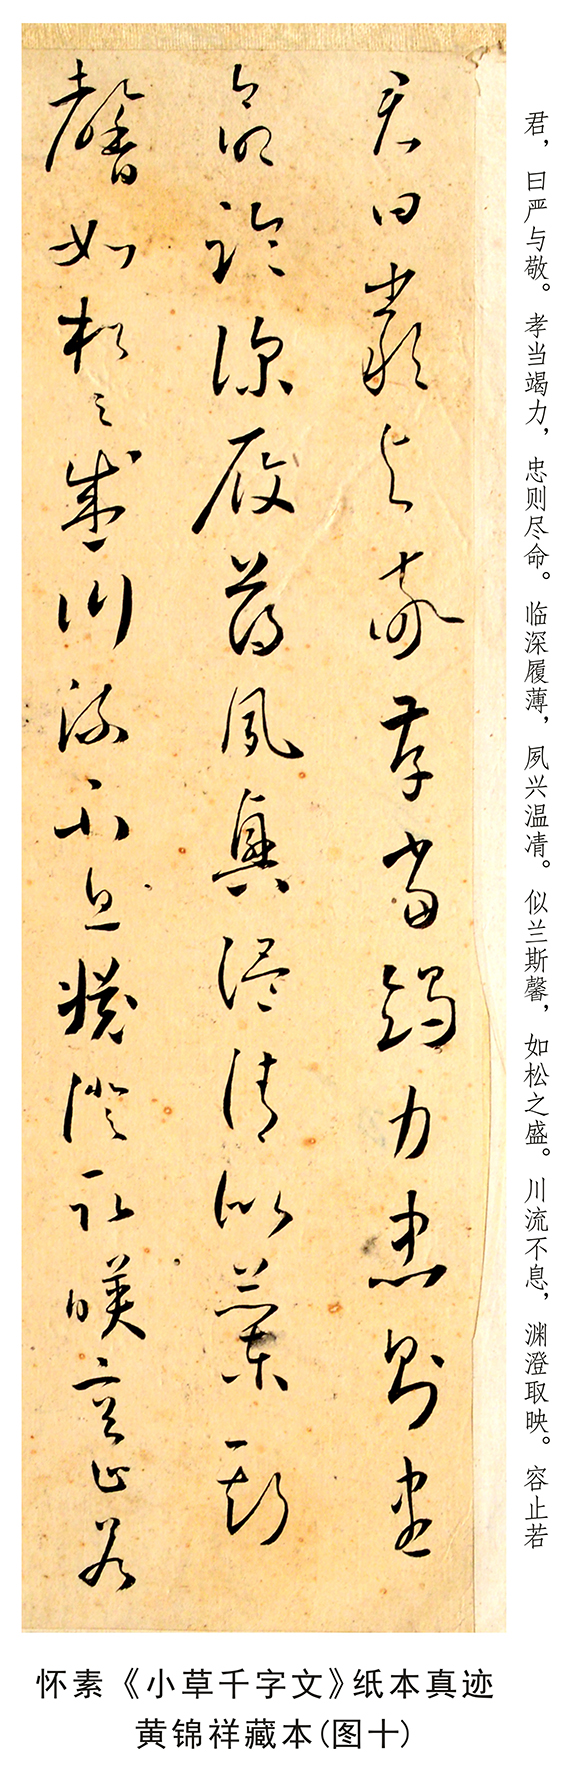 君，曰严与敬。孝当竭力，忠则尽命。临深履薄，夙兴温凊。似兰斯馨，如松之盛。川流不息，渊澄取映。容止若
君曰嚴與敬孝當竭力忠則盡
命臨深履薄夙興温清似蘭斯
馨如松之盛川流不息淵澄取映容止若
怀素《小草千字文》纸本真迹
黄锦祥藏本(图十)